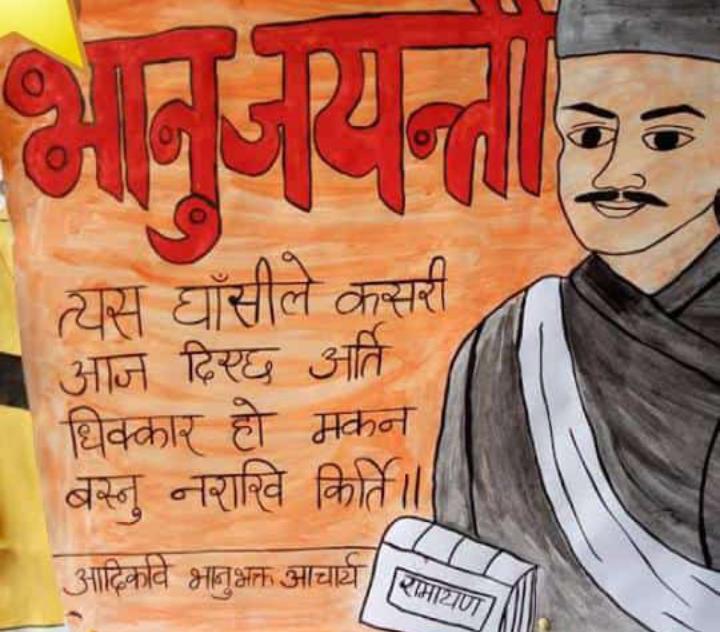 भानुजयन्ती
त्यस घाँसीले कसरी
आज दिएछ अर्ति
धिक्कार हो मकन
बस्नु नराखि किर्ति।।
आदिकवि भानुभक्त आचार्य
रामायण